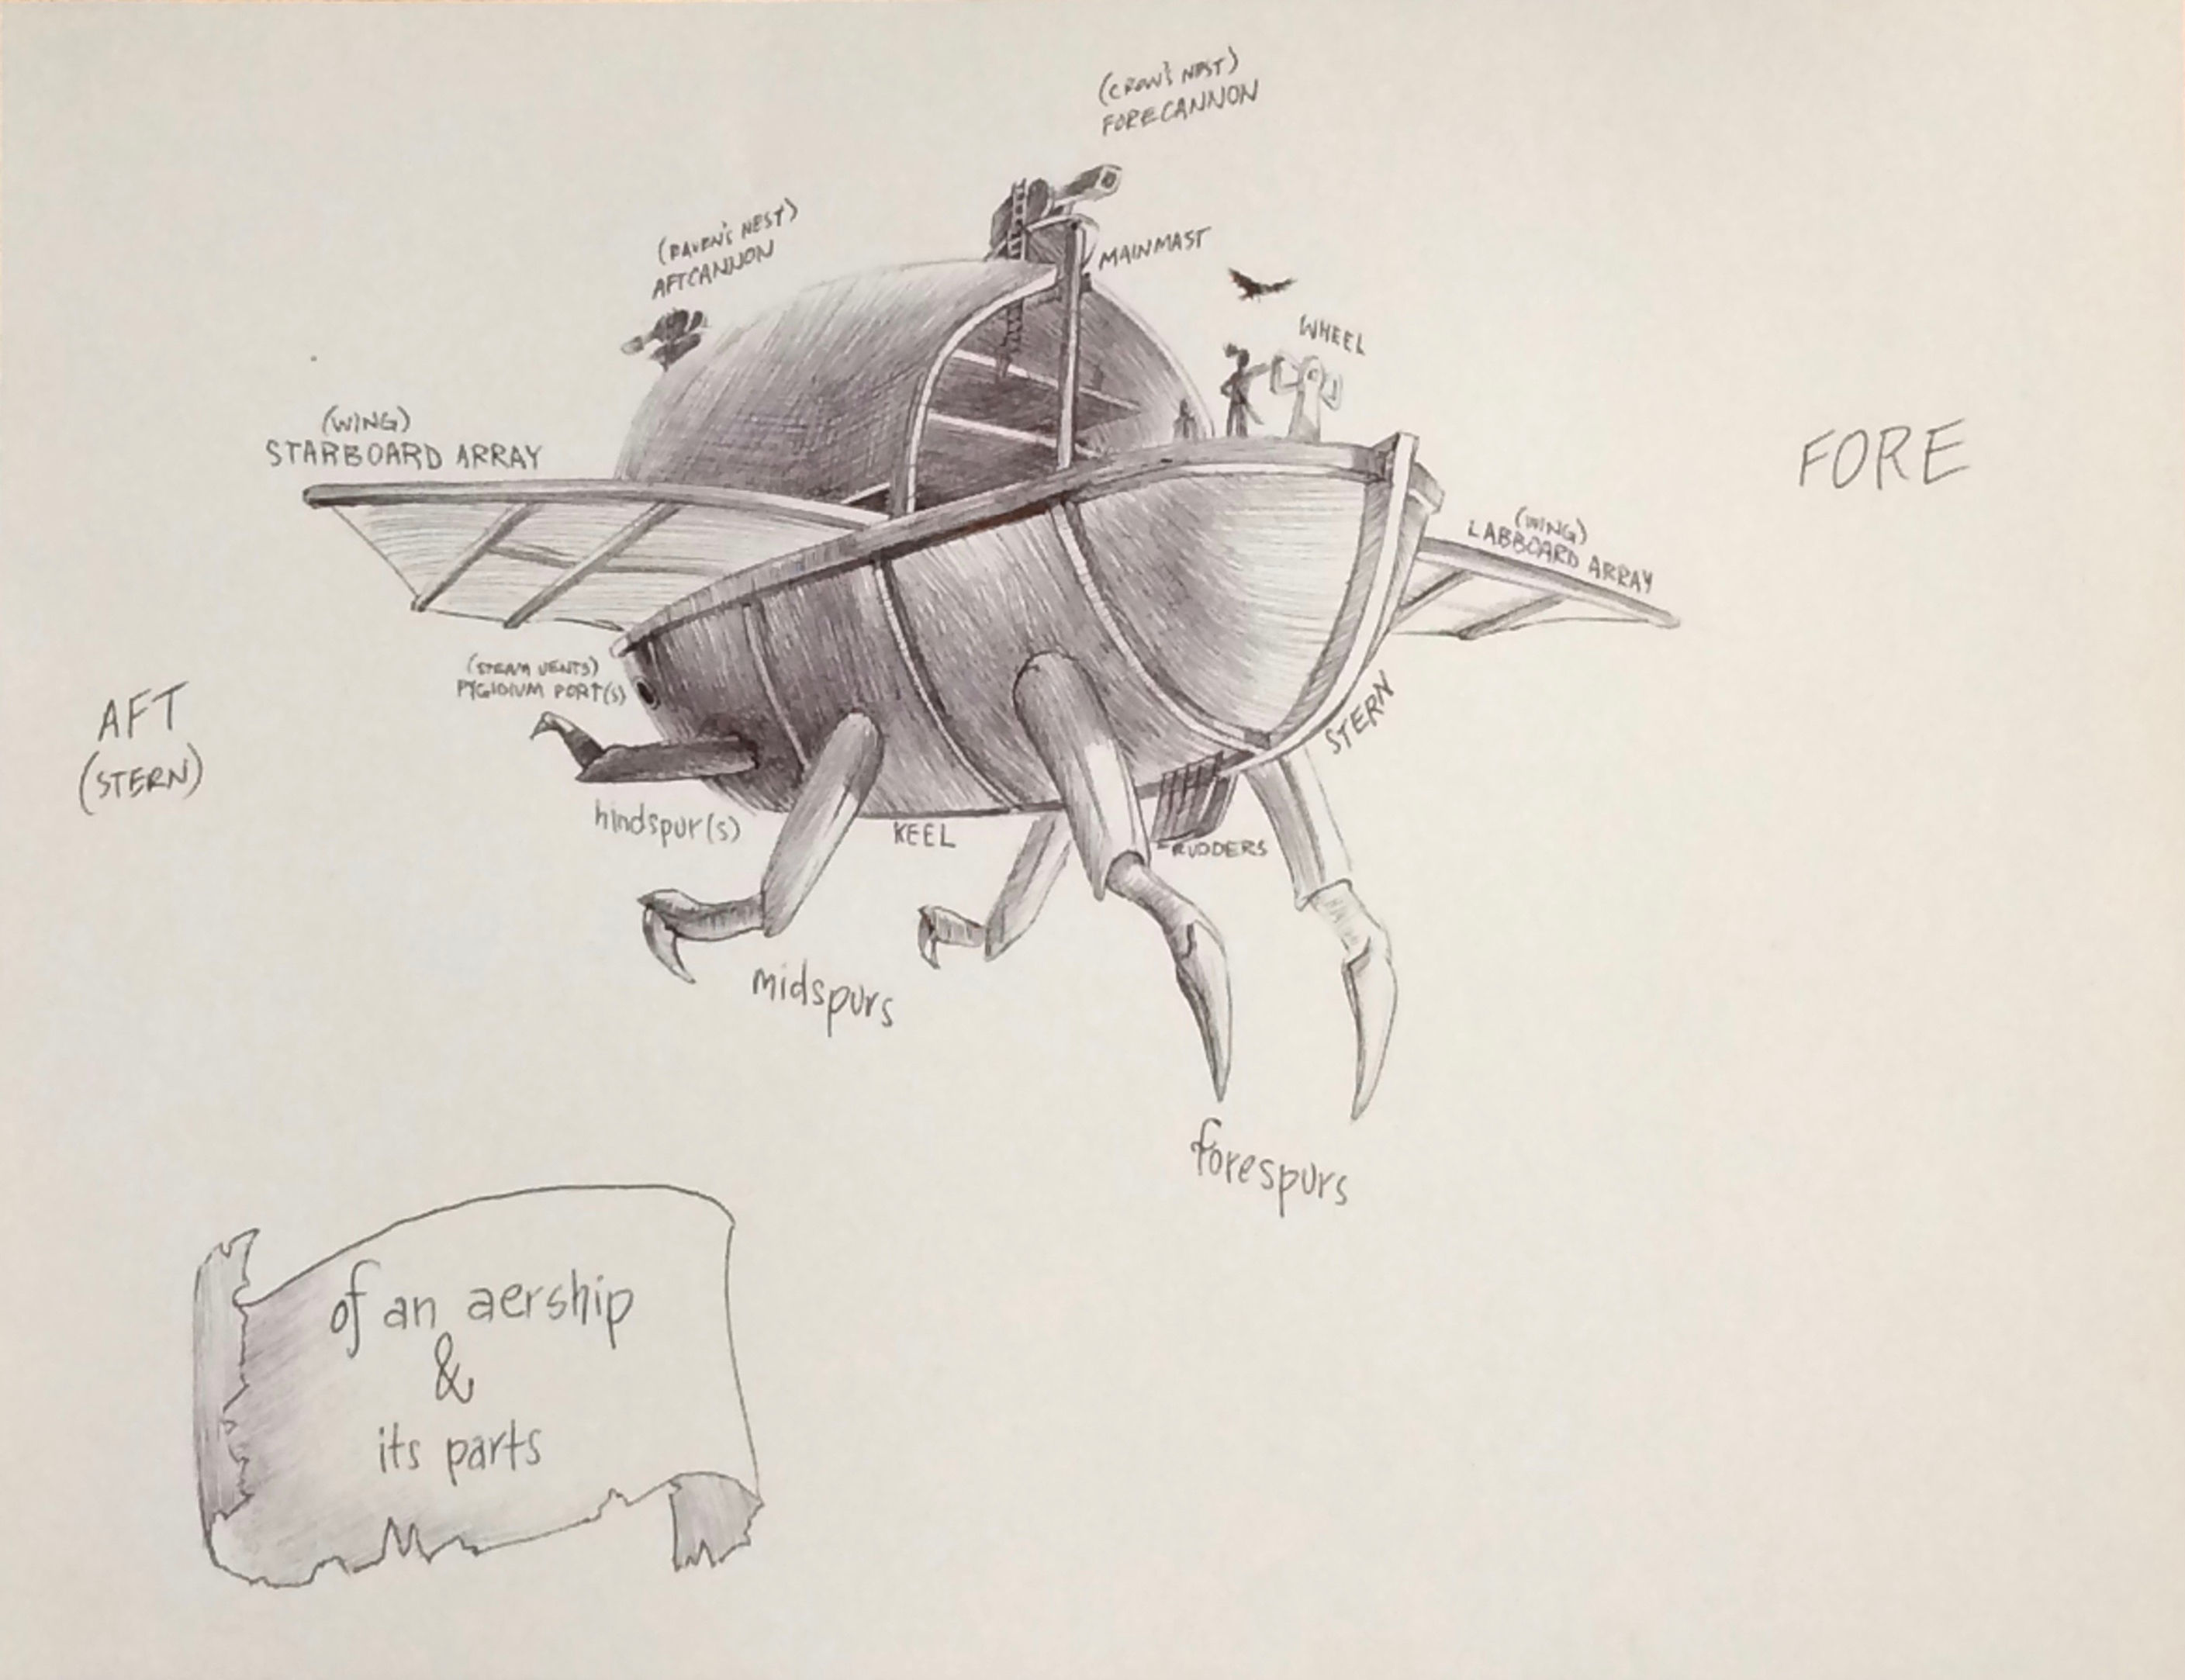 (CROW'S NEST)
FORECANNON
(RAVEN'S NEST)
AFTCANNON
MAINMAST
WHEEL
(WING)
STARBOARD ARRAY
FORE
(WING)
LABBOARD ARRAY
(STEAM VENTS)
PYGIDIUM PORT(S)
AFT
(STERN)
STERN
hindspur(s)
KEEL
RUDDERS
midspurs
forespurs
of an aership
&
its parts